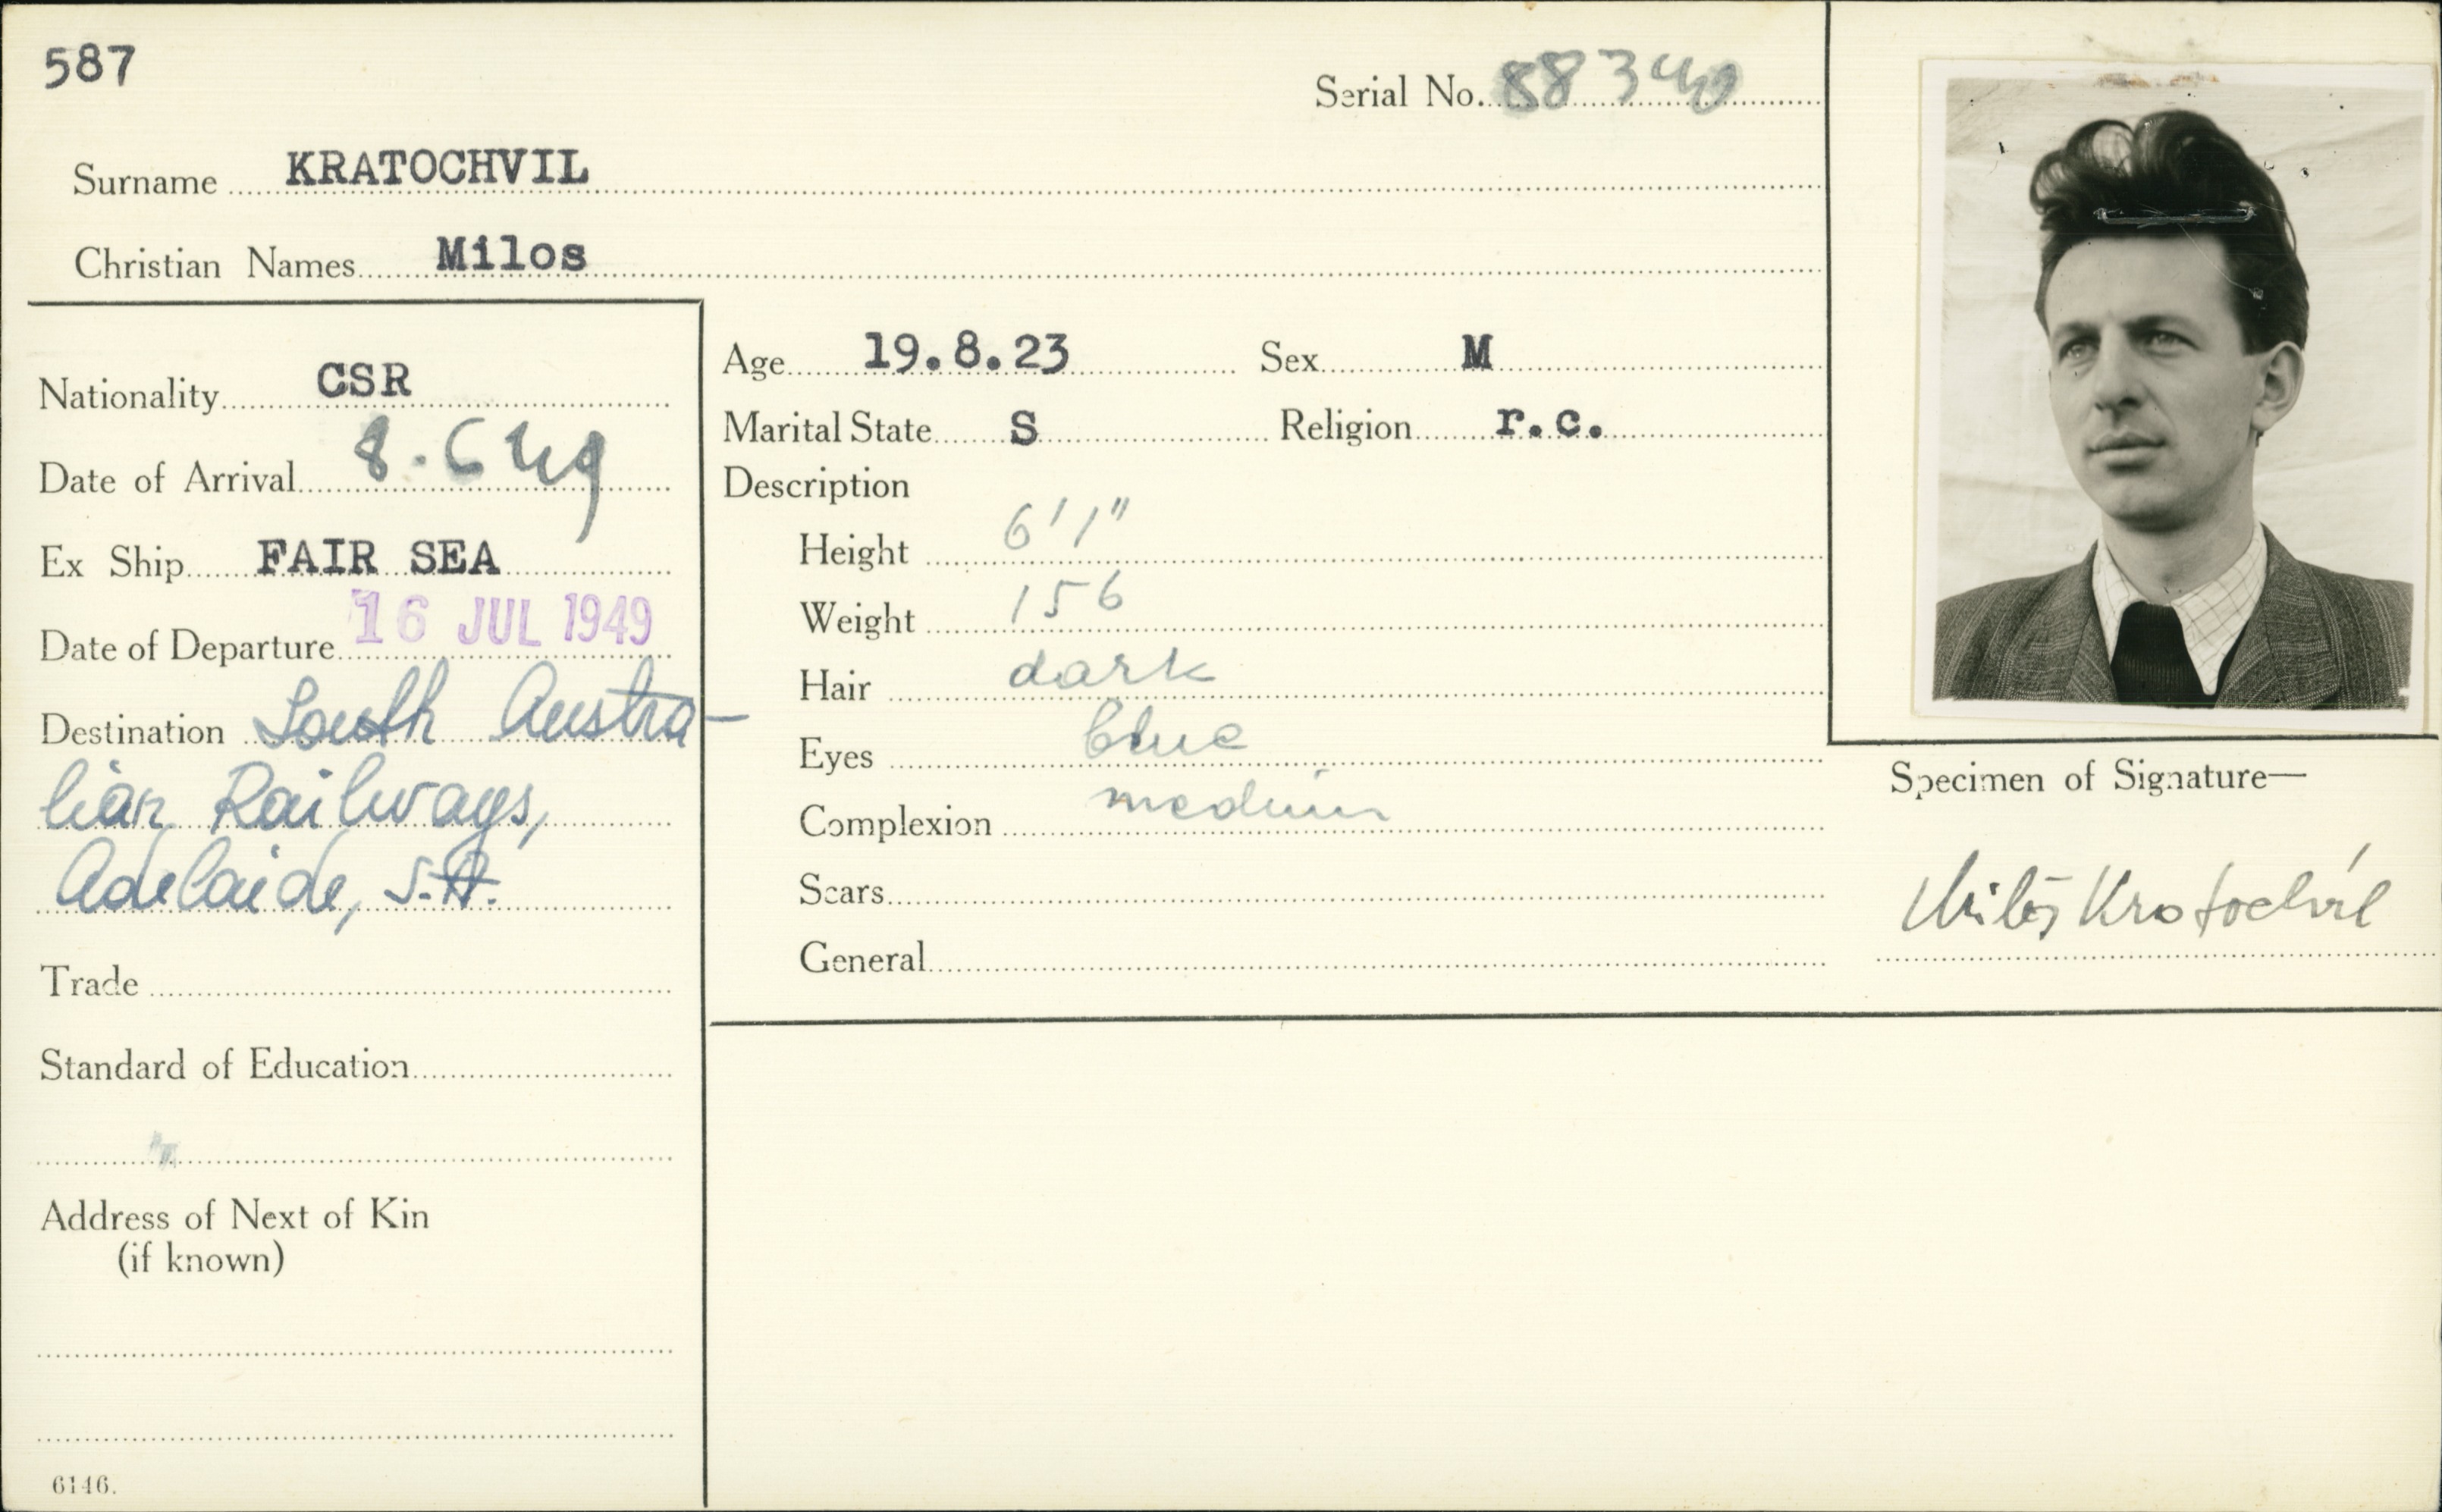 587
Serial No. 88340
Surname KRATOCHVIL
Christian Names Milos
Nationality CSR
Date of Arrival 8.6 49
Ex Ship FAIR SEA
Date of Departure 16 JUL 1949
Destination South Austra-
lian Railways,
Adelaide, S.A.
Trade
Standard of Education
Address of Next of Kin
(if known)
6146.
Age 19.8.23 Sex M
Marital State S Religion r.c.
Description
Height 6'1"
Weight 156
Hair dark
Eyes blue
Complexion medium
Scars
General
Specimen of Signature—
Miloš Kratochvíl